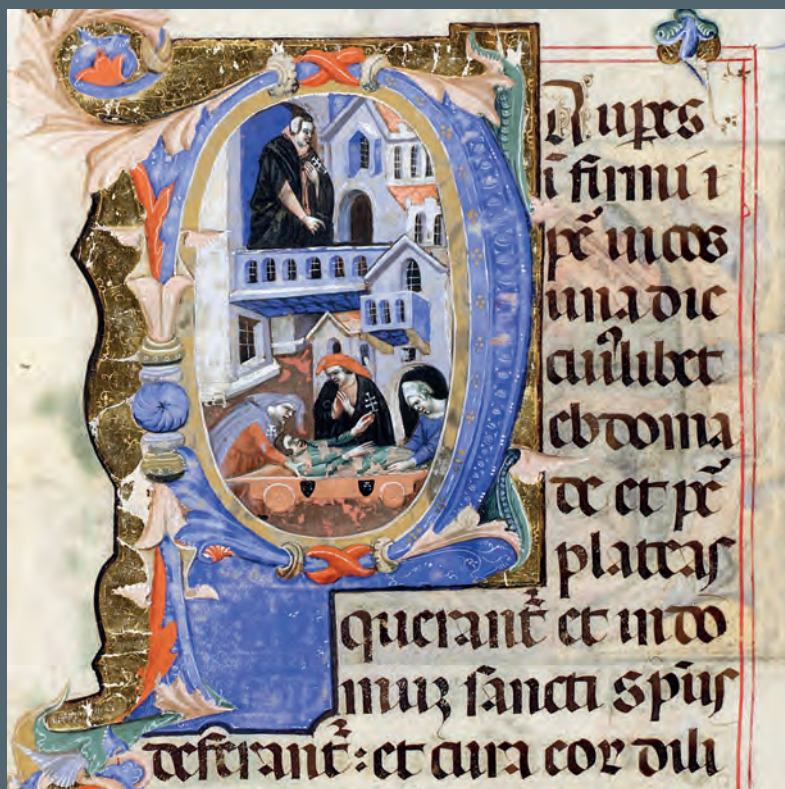 PAupes
ĩ firmi i
pẽ uicos
una die
cuiꝰlibet
ebdoma
de et pẽ
plateas
querant᷑ et in do
muz sancti spũs
deferant᷑: et cura eoꝝ dili